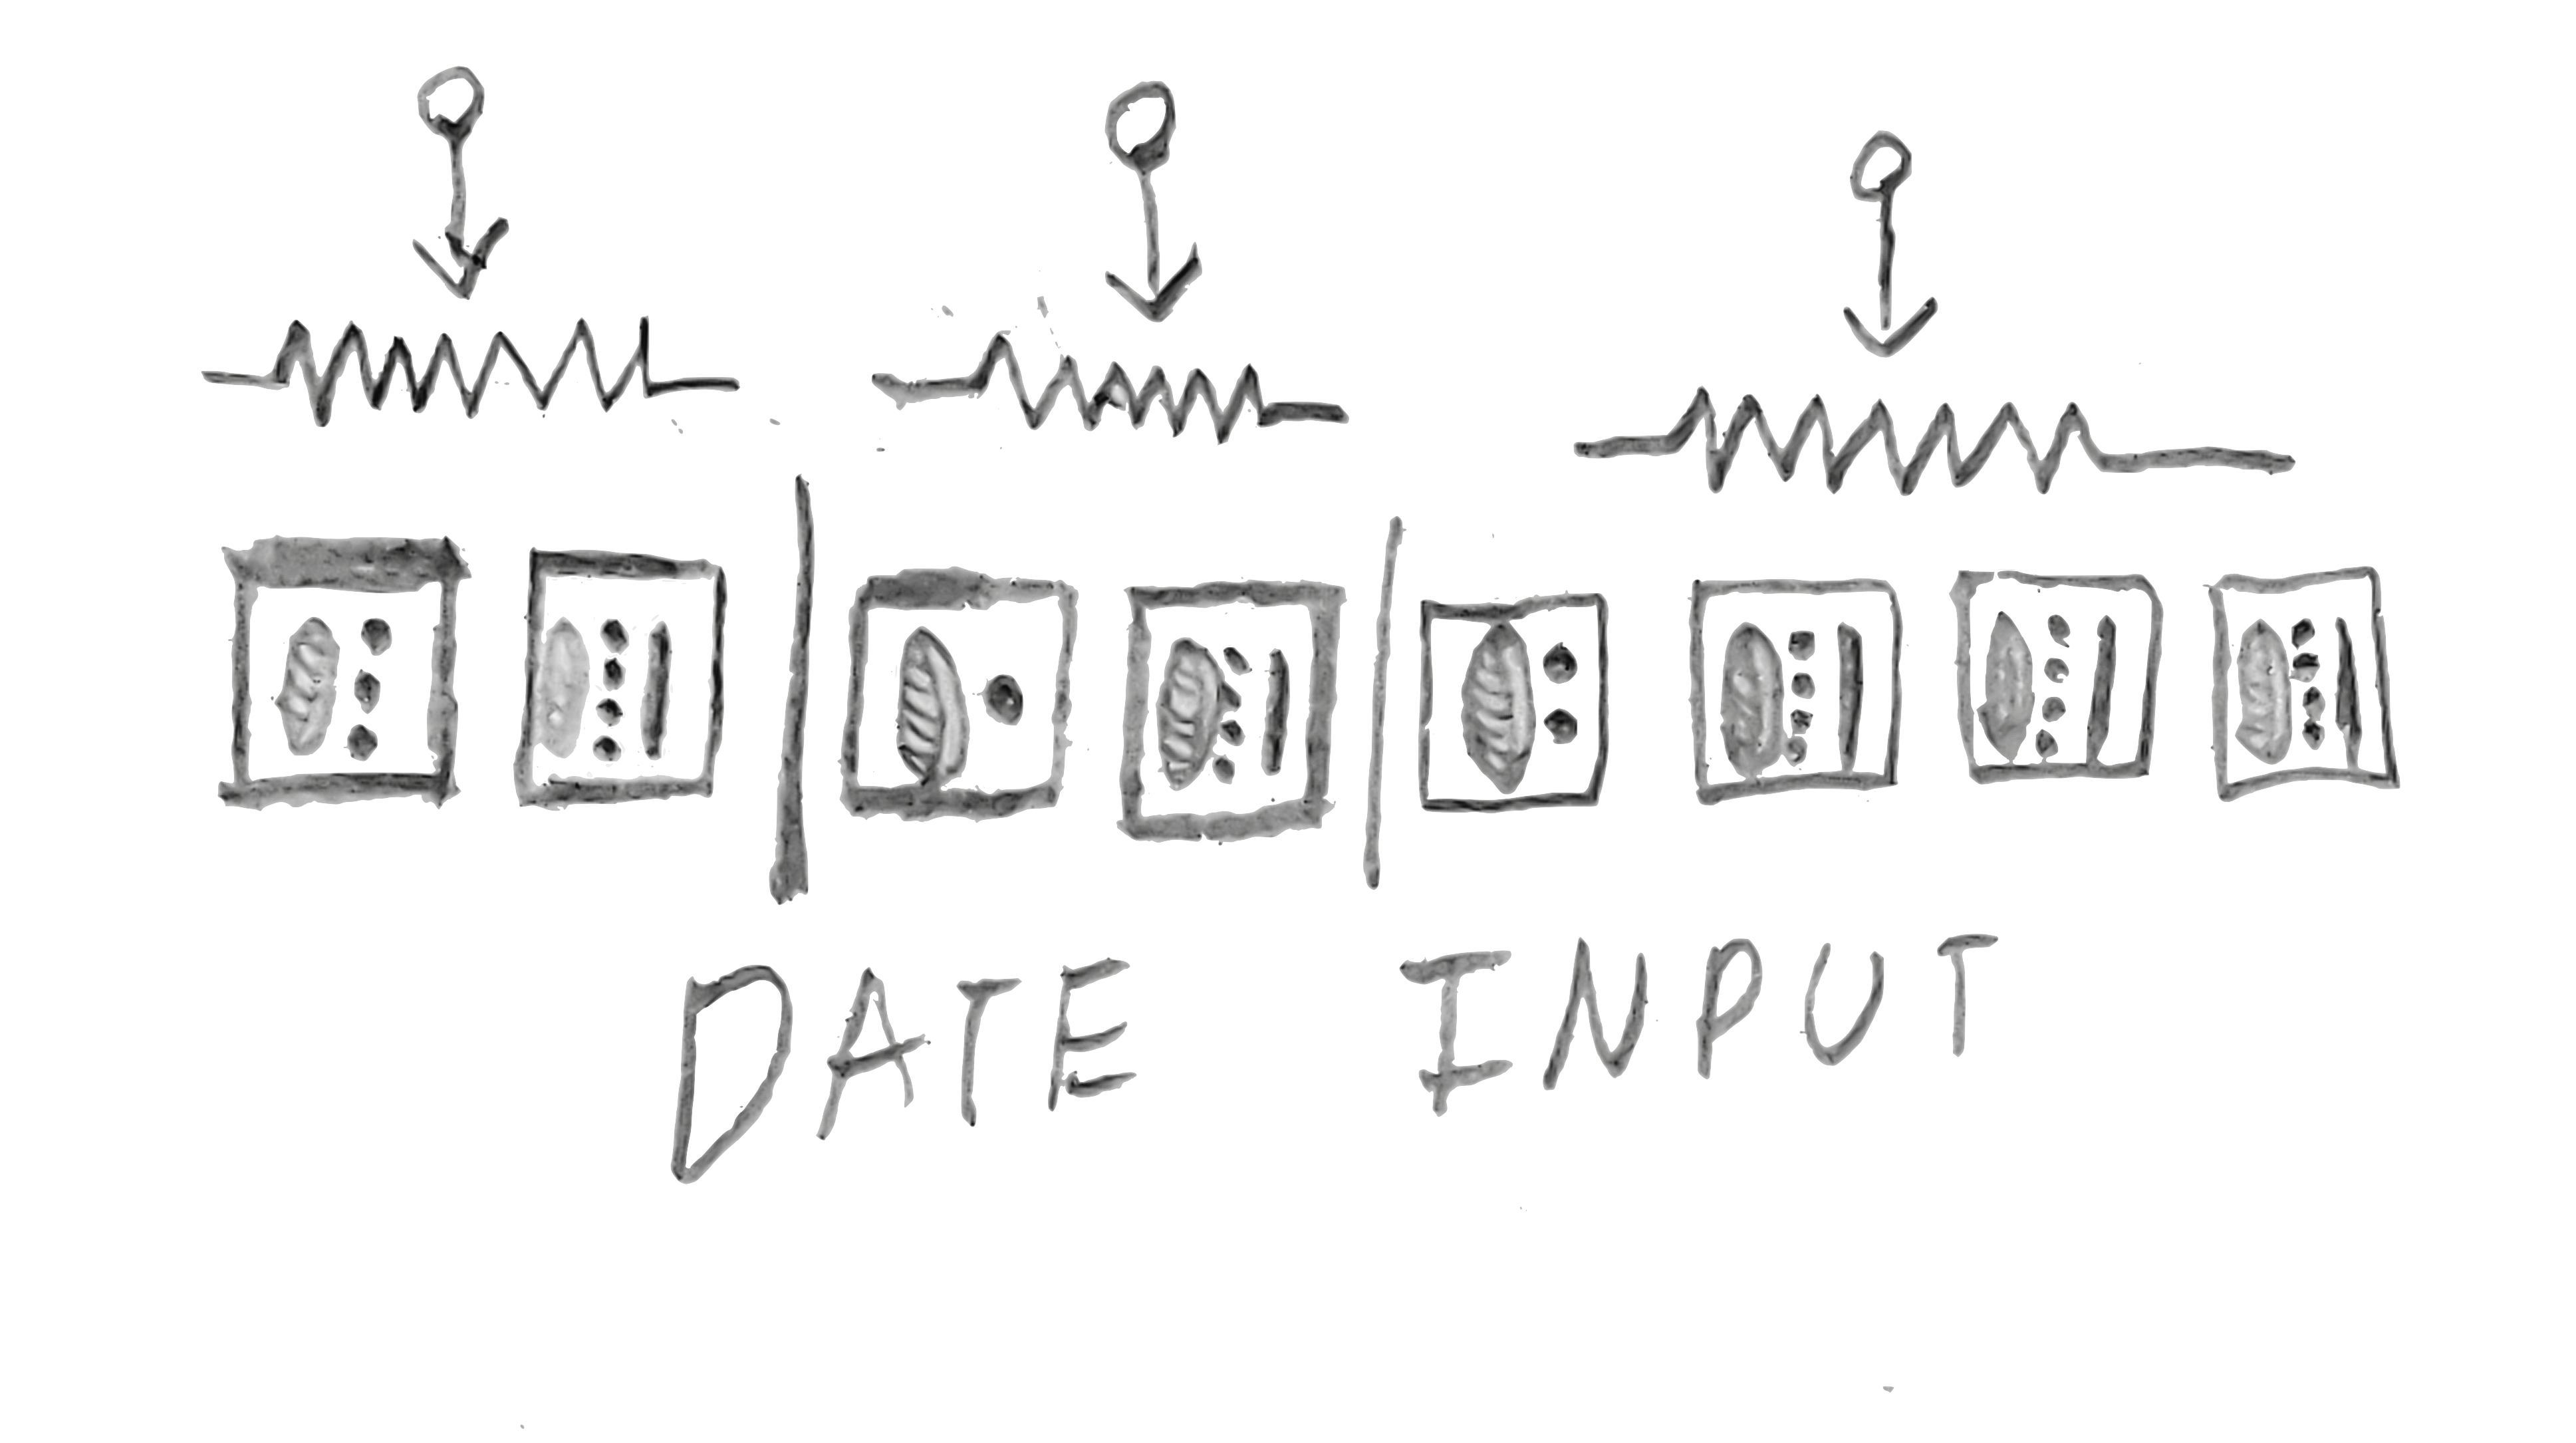 DATE INPUT